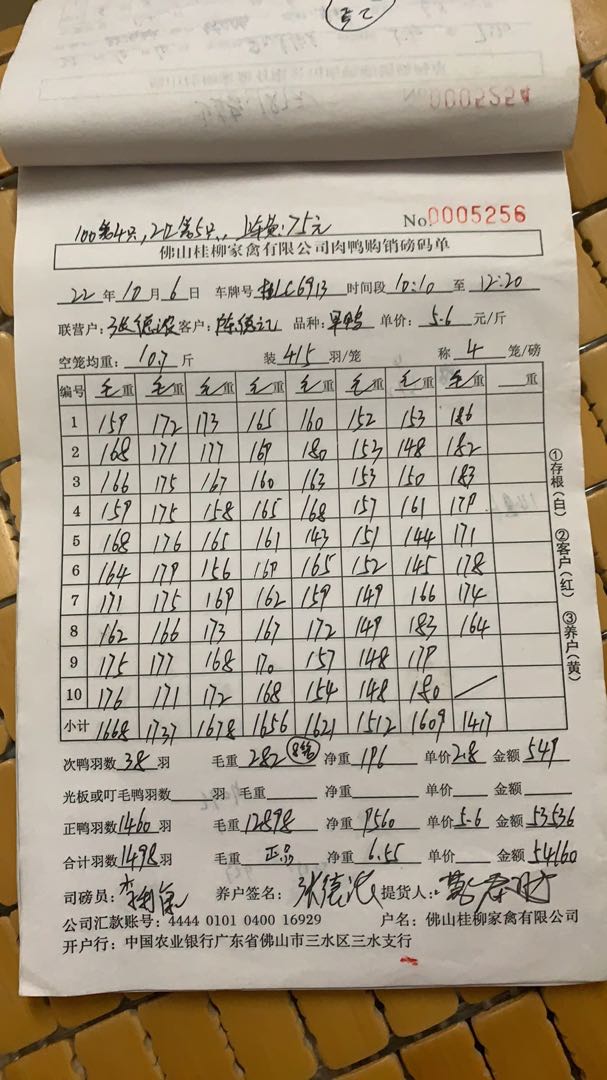 No 0005254
100笼4只,212笼5只,
75元
No.0005256
佛山桂柳家禽有限公司肉鸭购销磅码单
22年10月6日 车牌号 C6913 时间段 10:10 至 12:20
联营户: 张德浓 客户: 陈德记 品种: 单价: 5.6 元/斤
空笼均重: 10.7 斤 装 415 羽/笼 称 4 笼/磅
编号 毛重 毛重 毛重 毛重 毛重 毛重 毛重 毛重 重
1 159 172 173 165 160 152 153 186
2 168 171 177 169 180 153 148 182
3 166 175 167 160 163 153 150 183
4 159 175 158 165 168 157 161 179
5 168 176 165 161 143 151 144 171
6 164 179 156 169 165 152 145 178
7 171 175 169 162 159 149 166 174
8 162 166 173 167 172 149 183 164
9 175 177 168 170 157 148 179
10 176 171 172 168 154 148 180
小计 1668 1737 1678 1656 1621 1512 1609 1417
①存根(白) ②客户(红) ③养户(黄)
次鸭羽数 38 羽 毛重 282 8笼 净重 196 单价 2.8 金额 549
光板或叮毛鸭羽数 羽 毛重 净重 单价 金额
正鸭羽数 1460 羽 毛重 12898 净重 9560 单价 5.6 金额 53536
合计羽数 1498 羽 毛重 正品 净重 6.55 单价 金额 54160
司磅员: 养户签名: 张德浓 提货人:
公司汇款账号: 4444 0101 0400 16929 户名: 佛山桂柳家禽有限公司
开户行: 中国农业银行广东省佛山市三水区三水支行